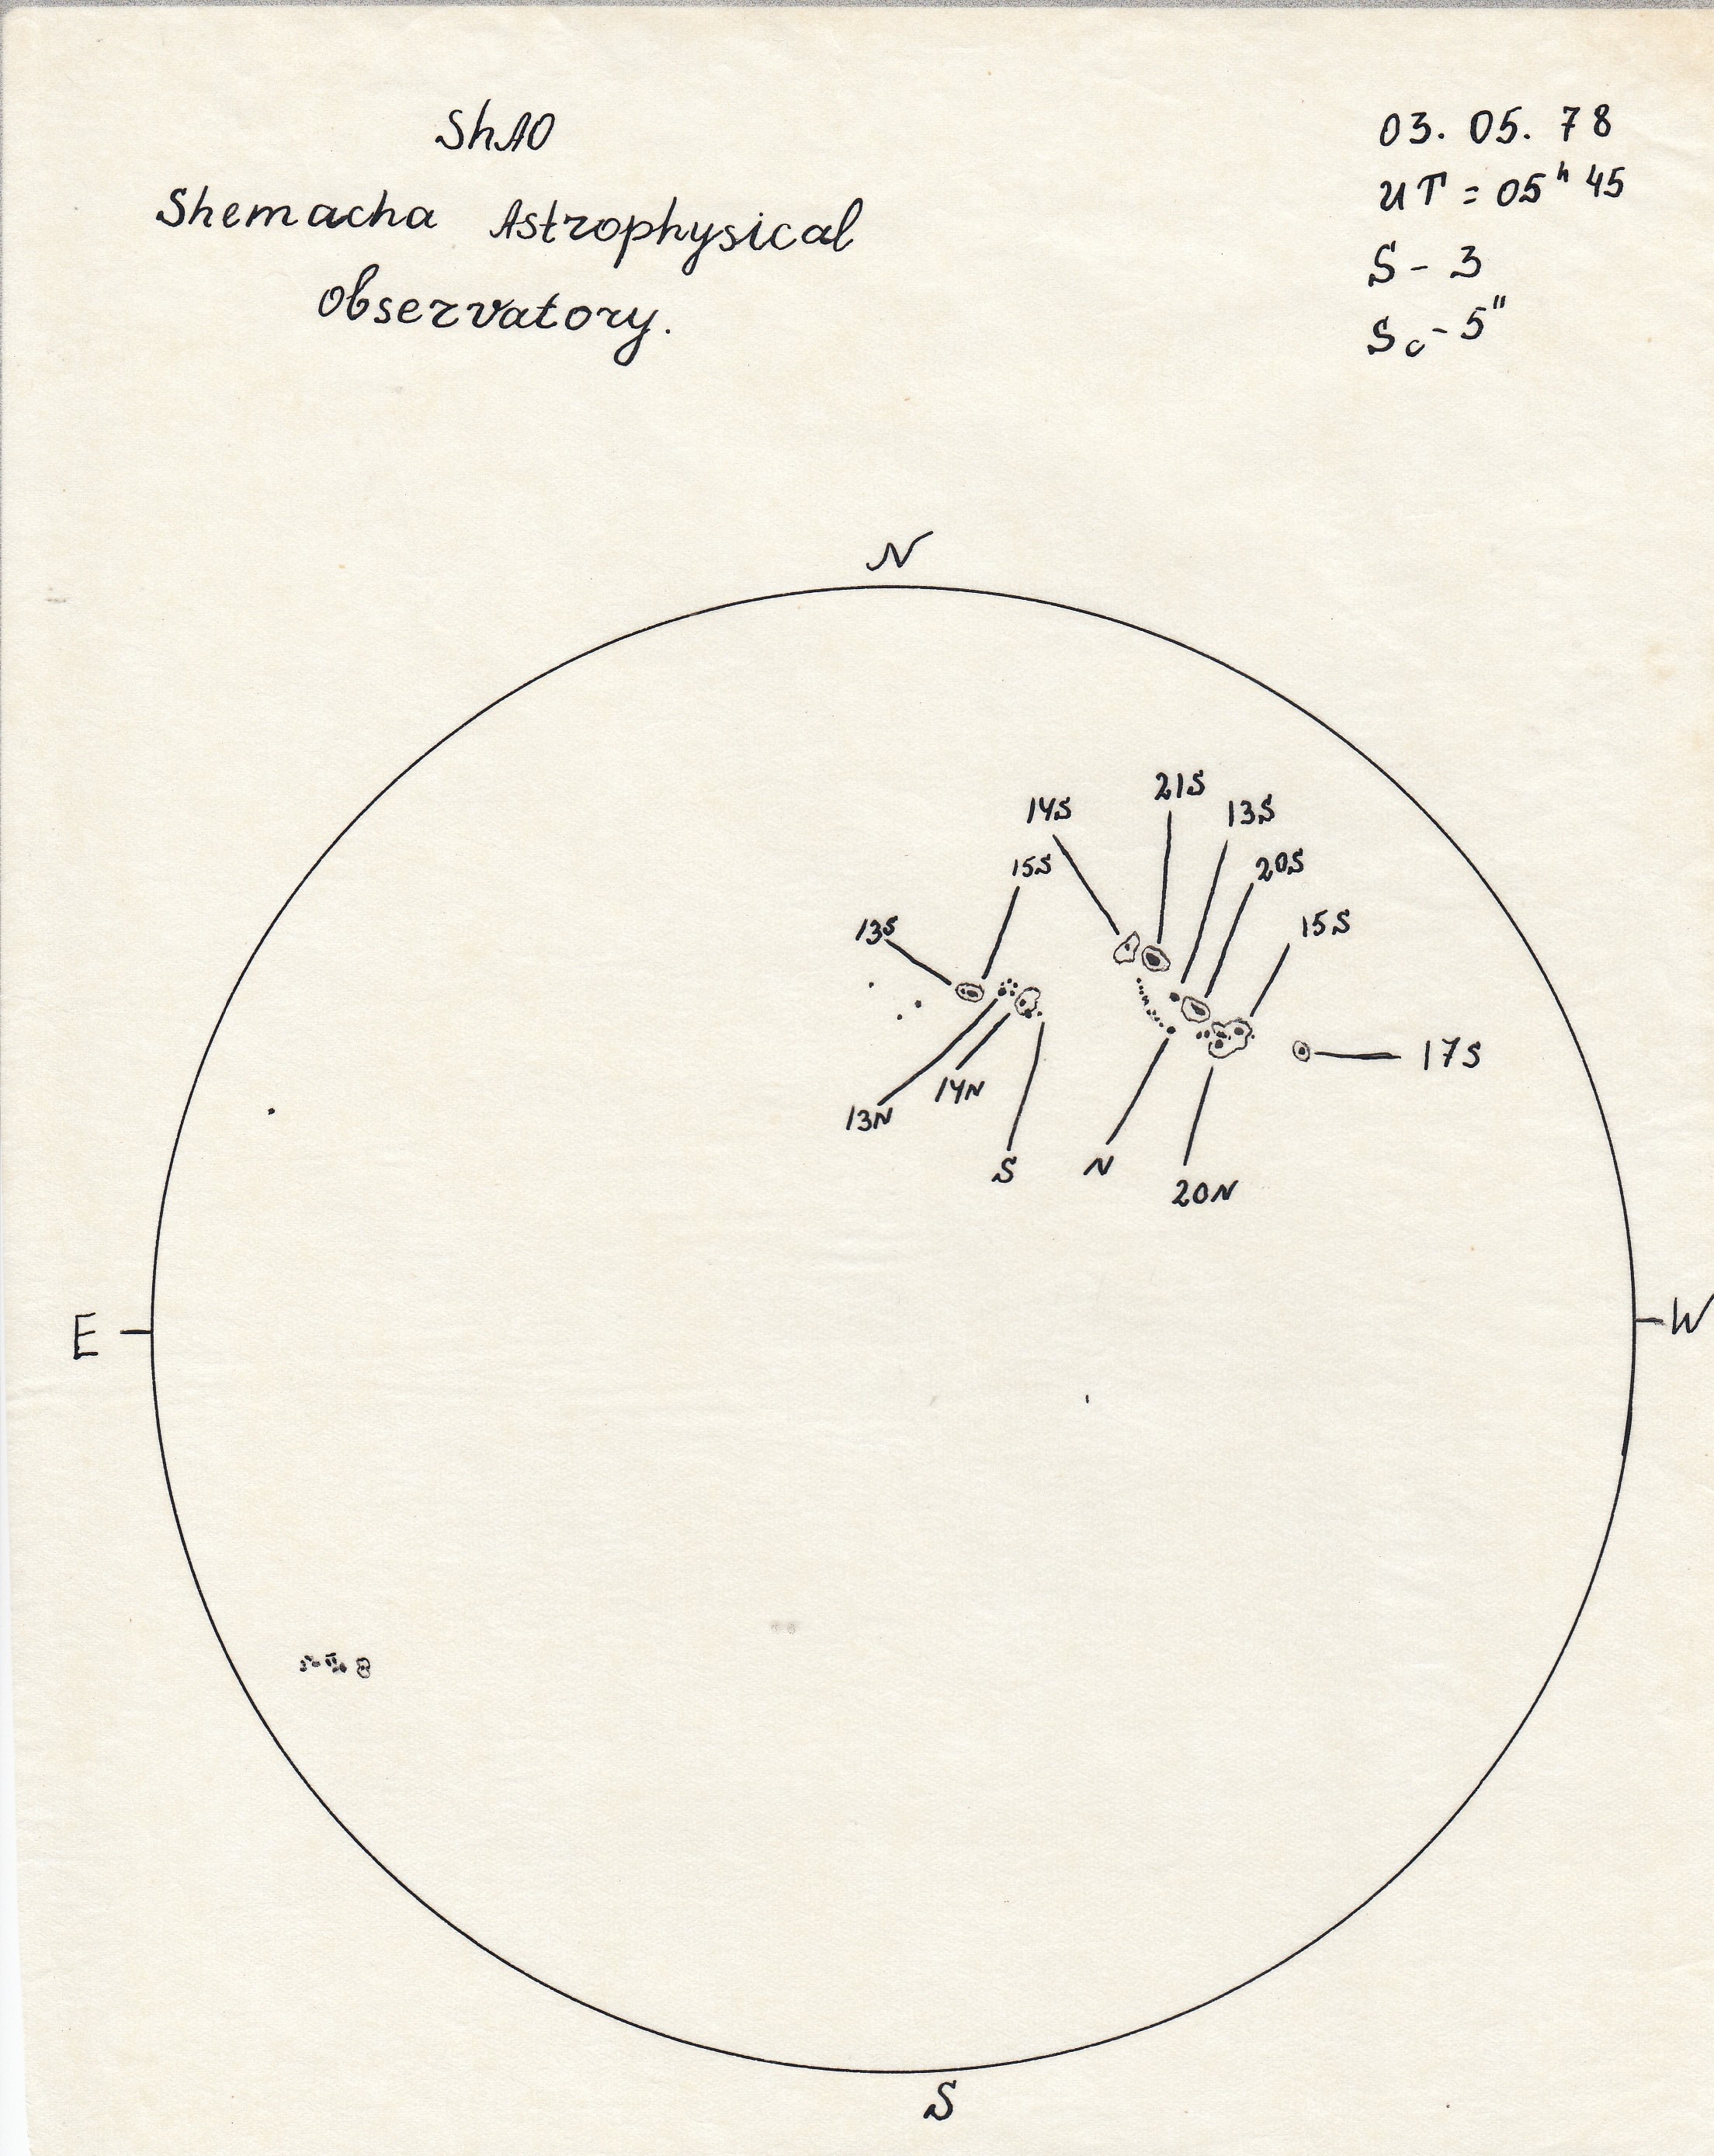 ShAO
Shemacha Astrophysical
Observatory.
03. 05. 78
UT = 05ʰ 45
S - 3
Sc - 5"
N
21S
14S
13S
15S
20S
13S
15S
17S
14N
13N
S
N
20N
E
W
S